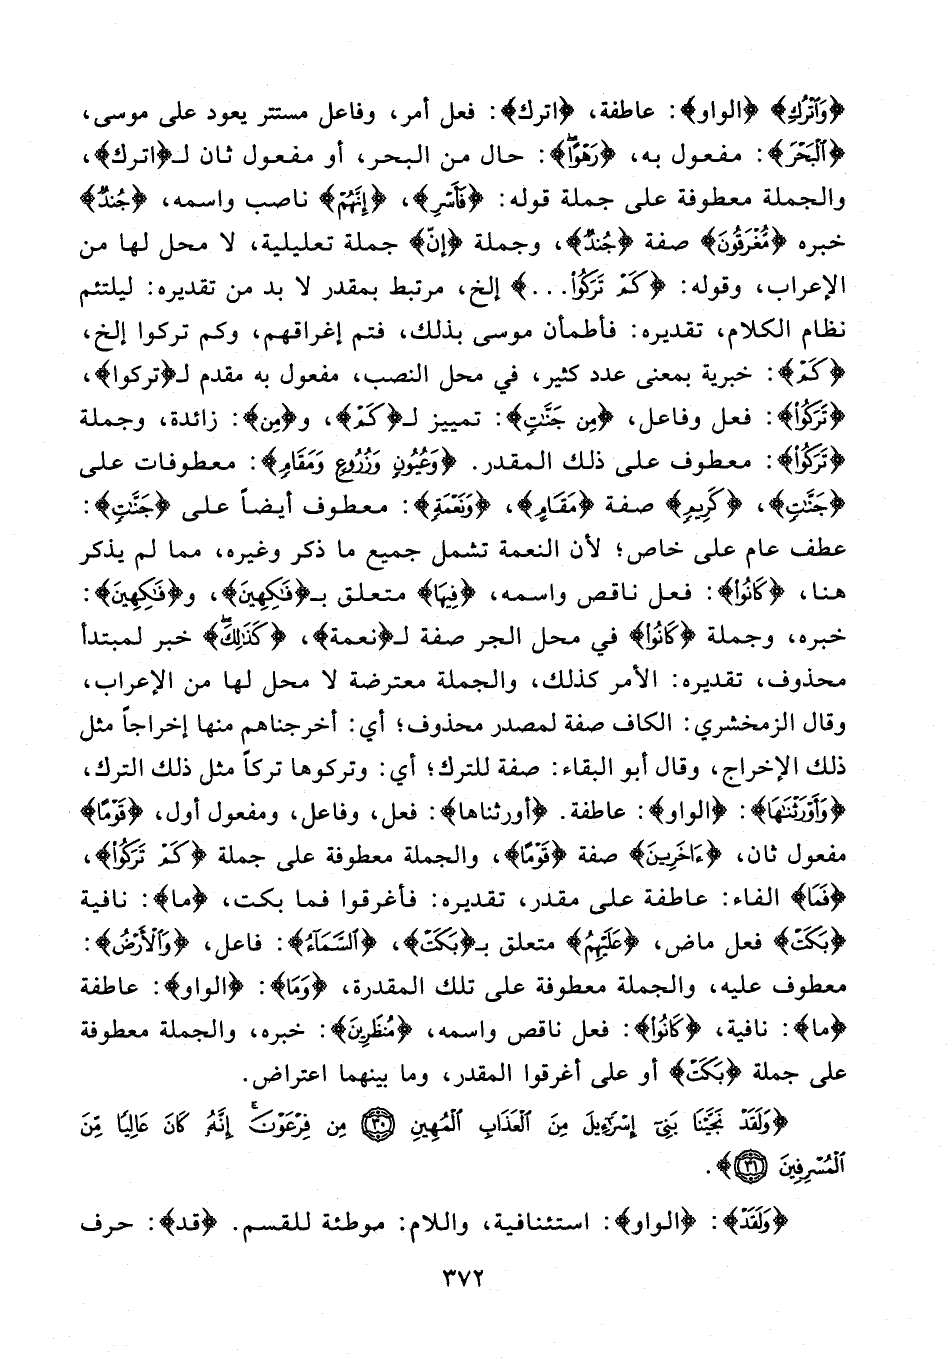 ﴿وَاتْرُكِ﴾ ﴿الواو﴾: عاطفة، ﴿اترك﴾: فعل أمر، وفاعل مستتر يعود على موسى،
﴿الْبَحْرَ﴾: مفعول به، ﴿رَهْوًا﴾: حال من البحر، أو مفعول ثان لـ﴿اترك﴾،
والجملة معطوفة على جملة قوله: ﴿فَأَسْرِ﴾، ﴿إِنَّهُمْ﴾ ناصب واسمه، ﴿جُندٌ﴾
خبره ﴿مُّغْرَقُونَ﴾ صفة ﴿جُندٌ﴾، وجملة ﴿إنّ﴾ جملة تعليلية، لا محل لها من
الإعراب، وقوله: ﴿كَمْ تَرَكُوا...﴾ إلخ، مرتبط بمقدر لا بد من تقديره: ليلتئم
نظام الكلام، تقديره: فأطمأن موسى بذلك، فتم إغراقهم، وكم تركوا إلخ،
﴿كَمْ﴾: خبرية بمعنى عدد كثير، في محل النصب، مفعول به مقدم لـ﴿تركوا﴾،
﴿تَرَكُوا﴾: فعل وفاعل، ﴿مِن جَنَّاتٍ﴾: تمييز لـ﴿كَمْ﴾، و﴿مِن﴾: زائدة، وجملة
﴿تَرَكُوا﴾: معطوف على ذلك المقدر. ﴿وَعُيُونٍ وَزُرُوعٍ وَمَقَامٍ﴾: معطوفات على
﴿جَنَّاتٍ﴾، ﴿كَرِيمٍ﴾ صفة ﴿مَقَامٍ﴾، ﴿وَنَعْمَةٍ﴾: معطوف أيضاً على ﴿جَنَّاتٍ﴾:
عطف عام على خاص؛ لأن النعمة تشمل جميع ما ذكر وغيره، مما لم يذكر
هنا، ﴿كَانُوا﴾: فعل ناقص واسمه، ﴿فِيهَا﴾ متعلق بـ﴿فَاكِهِينَ﴾، و﴿فَاكِهِينَ﴾:
خبره، وجملة ﴿كَانُوا﴾ في محل الجر صفة لـ﴿نعمة﴾، ﴿كَذَٰلِكَ﴾ خبر لمبتدأ
محذوف، تقديره: الأمر كذلك، والجملة معترضة لا محل لها من الإعراب،
وقال الزمخشري: الكاف صفة لمصدر محذوف؛ أي: أخرجناهم منها إخراجاً مثل
ذلك الإخراج، وقال أبو البقاء: صفة للترك؛ أي: وتركوها تركاً مثل ذلك الترك،
﴿وَأَوْرَثْنَاهَا﴾: ﴿الواو﴾: عاطفة. ﴿أورثناها﴾: فعل، وفاعل، ومفعول أول، ﴿قَوْمًا﴾
مفعول ثان، ﴿ءَاخَرِينَ﴾ صفة ﴿قَوْمًا﴾، والجملة معطوفة على جملة ﴿كَمْ تَرَكُوا﴾،
﴿فَمَا﴾ الفاء: عاطفة على مقدر، تقديره: فأغرقوا فما بكت، ﴿ما﴾: نافية
﴿بَكَتْ﴾ فعل ماض، ﴿عَلَيْهِمُ﴾ متعلق بـ﴿بَكَتْ﴾، ﴿السَّمَاءُ﴾: فاعل، ﴿وَالْأَرْضُ﴾:
معطوف عليه، والجملة معطوفة على تلك المقدرة، ﴿وَمَا﴾: ﴿الواو﴾: عاطفة
﴿ما﴾: نافية، ﴿كَانُوا﴾: فعل ناقص واسمه، ﴿مُنظَرِينَ﴾: خبره، والجملة معطوفة
على جملة ﴿بَكَتْ﴾ أو على أغرقوا المقدر، وما بينهما اعتراض.
﴿وَلَقَدْ نَجَّيْنَا بَنِي إِسْرَائِيلَ مِنَ الْعَذَابِ الْمُهِينِ ٣٠ مِن فِرْعَوْنَ ۚ إِنَّهُ كَانَ عَالِيًا مِّنَ
الْمُسْرِفِينَ ٣١﴾.
﴿وَلَقَدْ﴾: ﴿الواو﴾: استئنافية، واللام: موطئة للقسم. ﴿قد﴾: حرف
٣٧٢